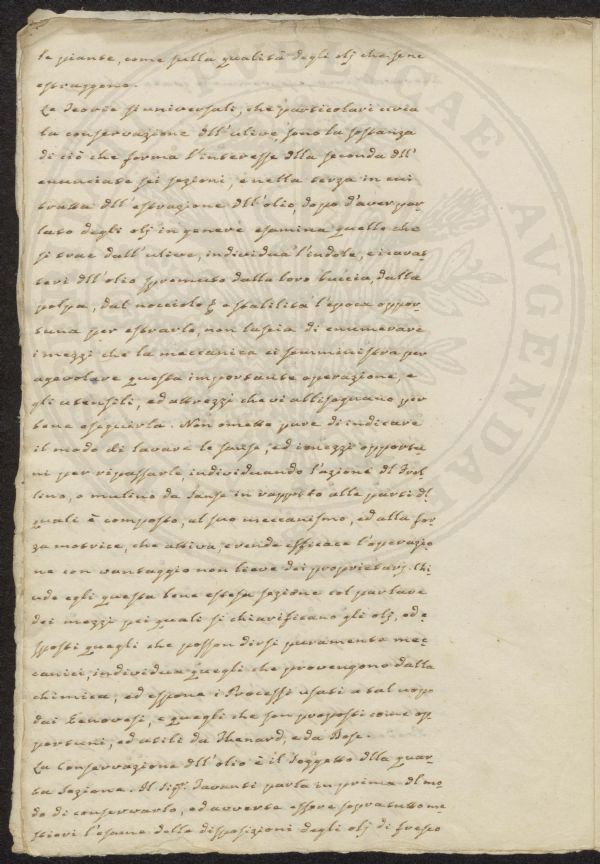 le piante, come sulla qualità degli olj che sene
estraggono.
Le Teorie sì universali, che particolari circa
la conservazione dll' ulive, sono la sostanza
di ciò che forma l'interesse dlla seconda dll'
enunciate sei sezioni, e nella terza in cui
tratta dll' estrazione dll' olio, dopo d'aver par-
lato degli olj in genere esamina quello che
si trae dall' ulive, individua l'indole, e i carat-
teri dll' olio spremuto dalla loro buccia, dalla
polpa, dal nocciolo e stabilità l'epoca oppor-
tuna per estrarlo, non lascia di enumerare
i mezzi che la meccanica ci somministra per
agevolare questa importante operazione, e
gli utensili, ed attrezzi che vi abbisognano per
bene eseguirla. Non omette pure di indicare
il modo di lavare le sanse, ed i mezzi opportu
ni per ripassarle, individuando l'azione dl Frul
lino, o mulino da Sanse in rapporto alle parti dl
quali è composto, al suo meccanismo, ed alla for
za motrice, che attiva, e rende efficace l'operazio
ne con vantaggio non lieve dei proprietarj. Chi-
ude egli questa bene estesa sezione col parlare
dei mezzi pei quali si chiarificano gli olj, ed e-
sposti quegli che posson dirsi puramente mec-
canici, individua quegli che provengono dalla
chimica, ed espone i Processi usati a tal uopo
dai Genovesi, e quegli che son proposti come op
portuni, ed utili da Thenard, e da Bosc.
La Conservazione dll' olio è il Soggetto dlla quar-
ta Sezione. Il Sigr. Tavanti parla in prima dl mo-
do di conservarlo, ed avverte essere sopratutto me-
stieri l'esame delle disposizioni degli olj di fresco
PVBLICAE
AVGENDAE